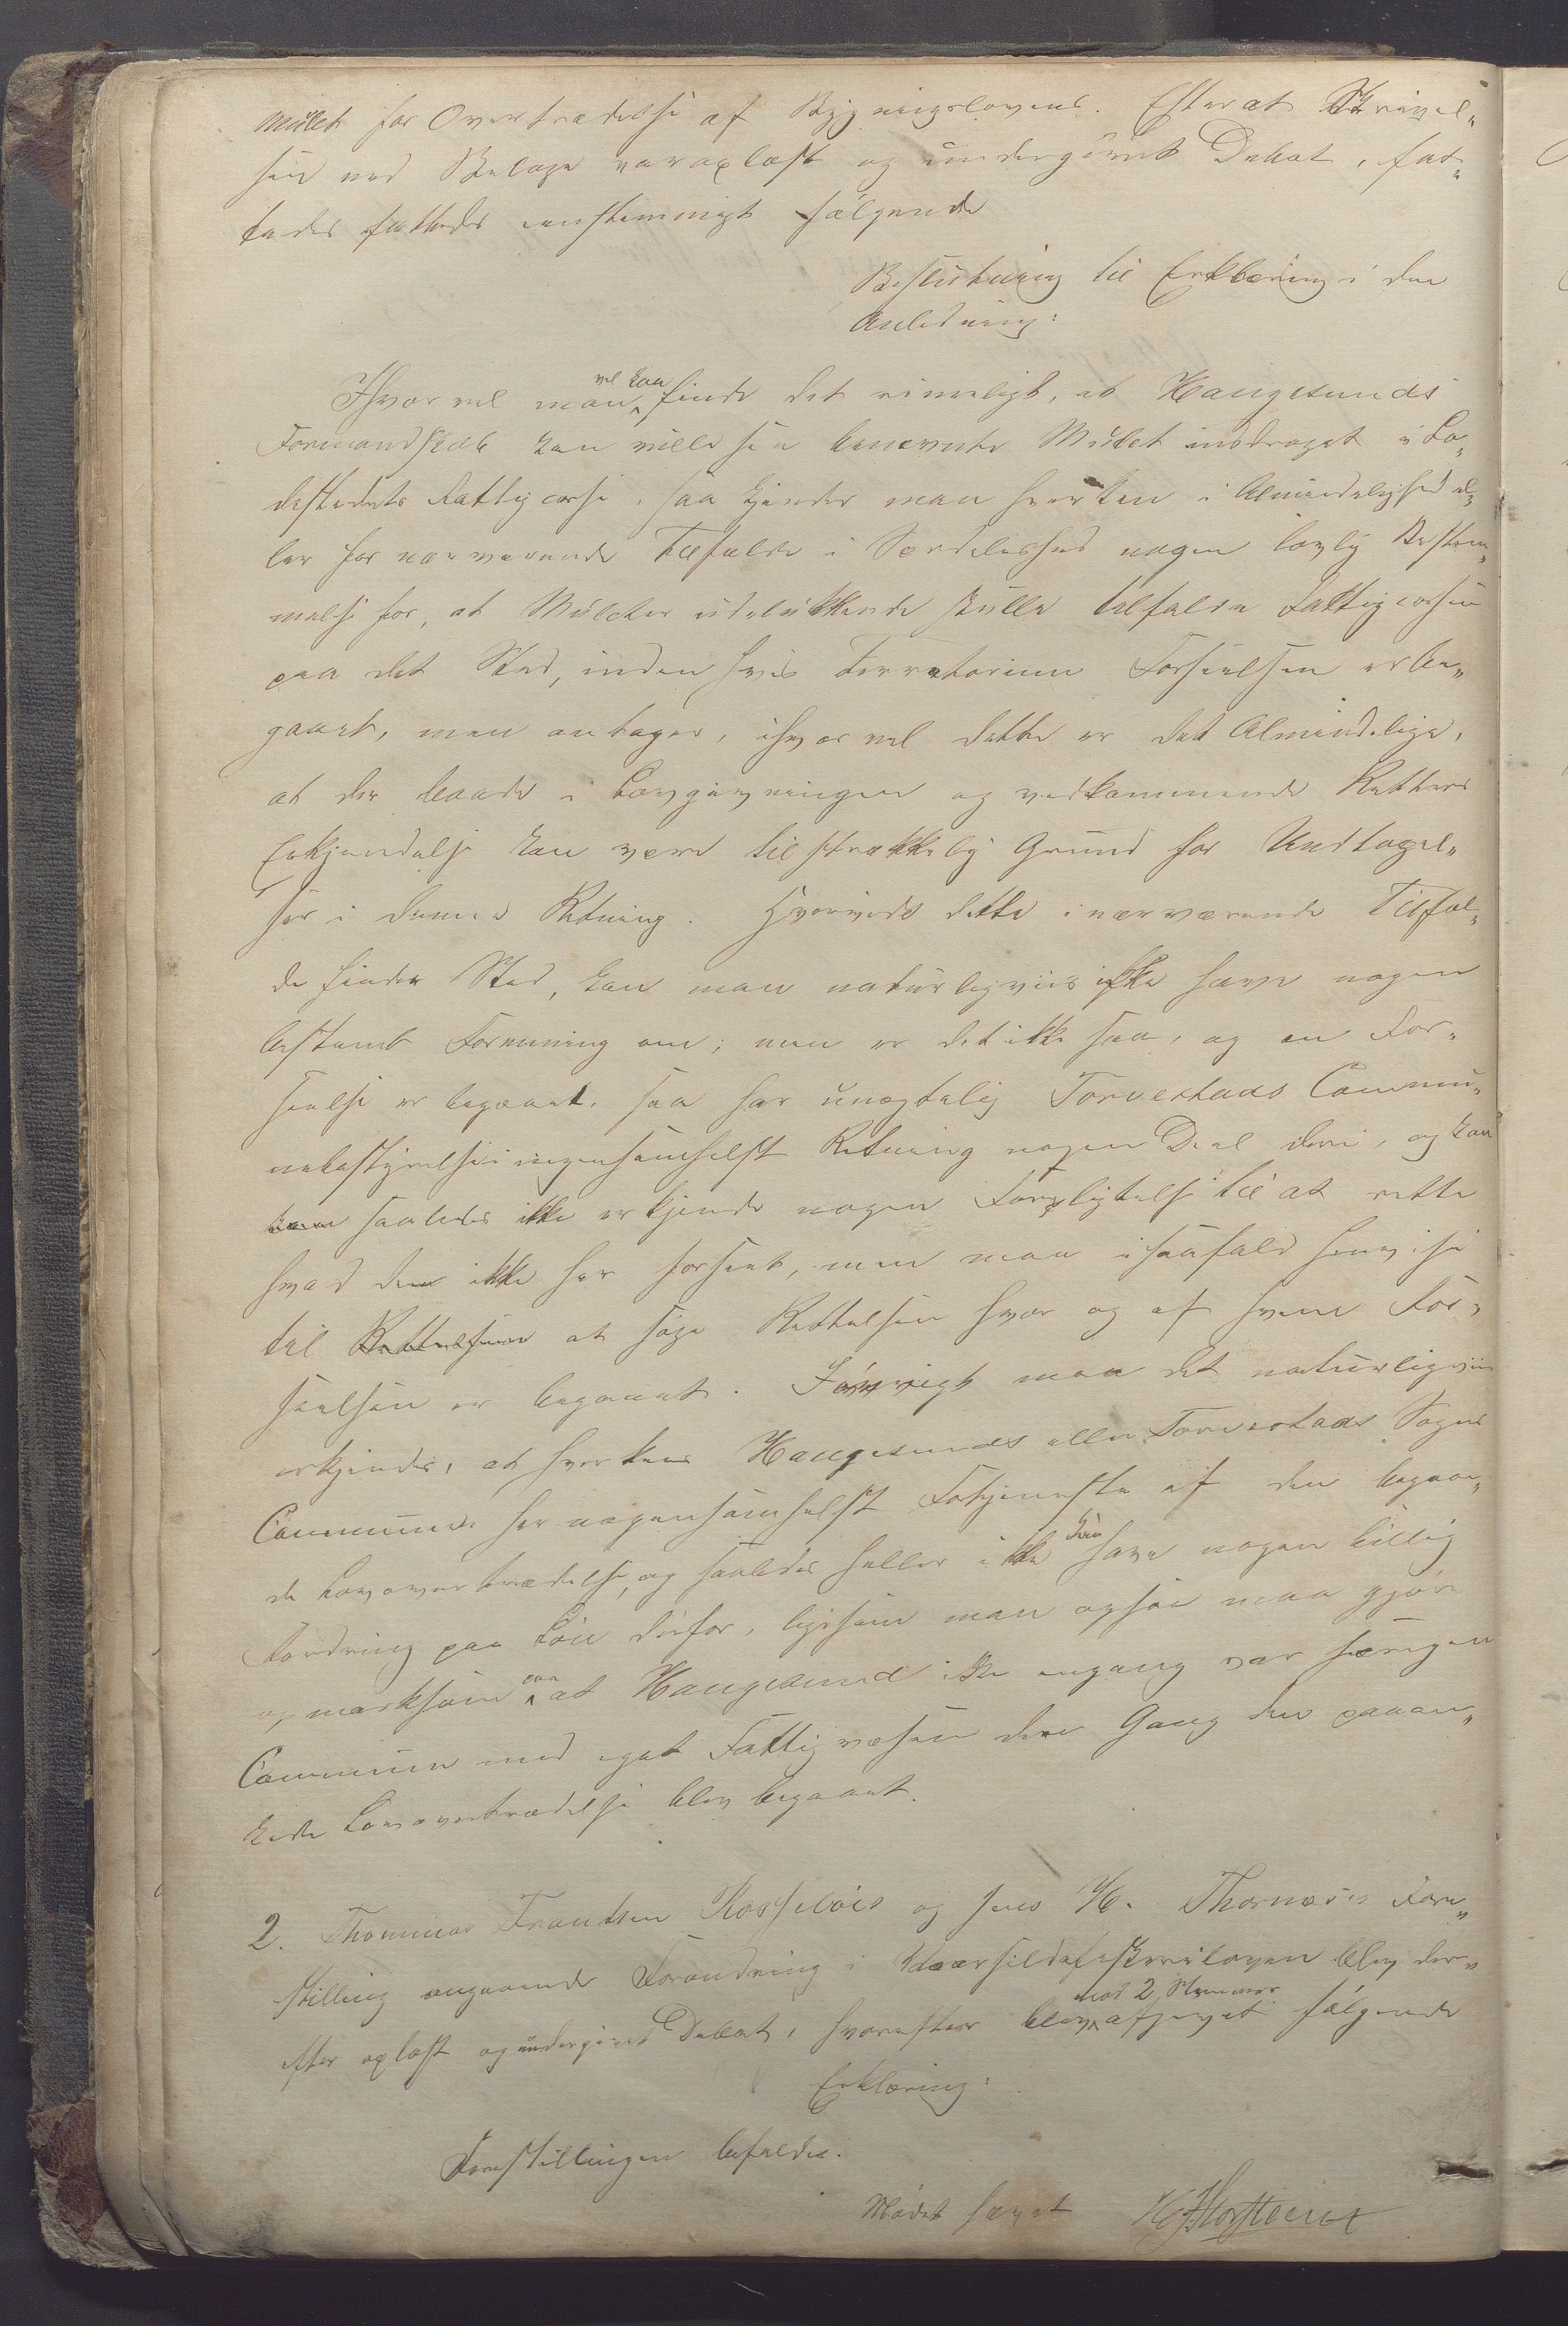 Mulct for Overtrædelse af Bygningsloven. Efterat Skrivel„
sen med Bilage var oplæst og undergivet Debat, fat„
tedes fattedes enstemmigt følgende
Beslutning til Erklæring i den
Anledning:
Ihvorvel man vel kan finde det rimeligt, at Haugesunds
Formandskab kan ville se benævnte Mulct inddraget i La„
destedets Fattigcasse, saa kjender man hverken i Almindelighed el„
ler for nærværende Tilfælde i Særdeleshed nogen lovlig Bestem„
melse for, at Mulcter udelukkende skulle tilfalde Fattigcassen
paa det Sted, inden hvis Territorium Forseelsen er be„
gaaet, men antager, ihvorvel dette er det Almindelige,
at der baade i Lovgivningen og vedkommende Retters
Erkjendelse kan være tilstrækkelig Grund for Undtagel„
ser i denne Retning. Hvorvidt dette i nærværende Tilfæl„
de finder Sted, kan man naturligviis ikke have nogen
bestemt Formening om; men er det ikke saa, og en For„
seelse er begaaet, saa har unegtelig Torvestads Commu„
nebestyrelse i ingensomhelst Retning nogen Deel deri, og kan
kan saaledes ikke erkjende nogen Forpligtelse til at rette
hvad den ikke har forseet, men maa isaafald henvise
til Rettelsen at søge Rettelsen hvor og af hvem For„
seelsen er begaaet. Forøvrigt maa det naturligviis
erkjendes, at hverken Haugesunds eller Torvestads Sogns
Commune har nogensomhelst Fortjeneste af den begaae„
de Lovovertrædelse, og saaledes heller ikke kan have nogen billig
Fordring paa Løn derfor, ligesom man ogsaa maa gjøre
opmærksom paa at Haugesund ikke engang var særegen
Commune med eget Fattigvæsen den Gang den paaan„
kede Lovovertrædelse blev begaaet.
2. Thommas Frantsen og Jens H. Thornæs's Fore„
stilling angaaende Forandring i Vaarsildfiskeriloven blev der„
efter oplæst og undergivet Debat, hvorefter blev mod 2 Stemmer afgivet følgende
Erklæring:
Forestillingen befaldes.
Mødet hævet